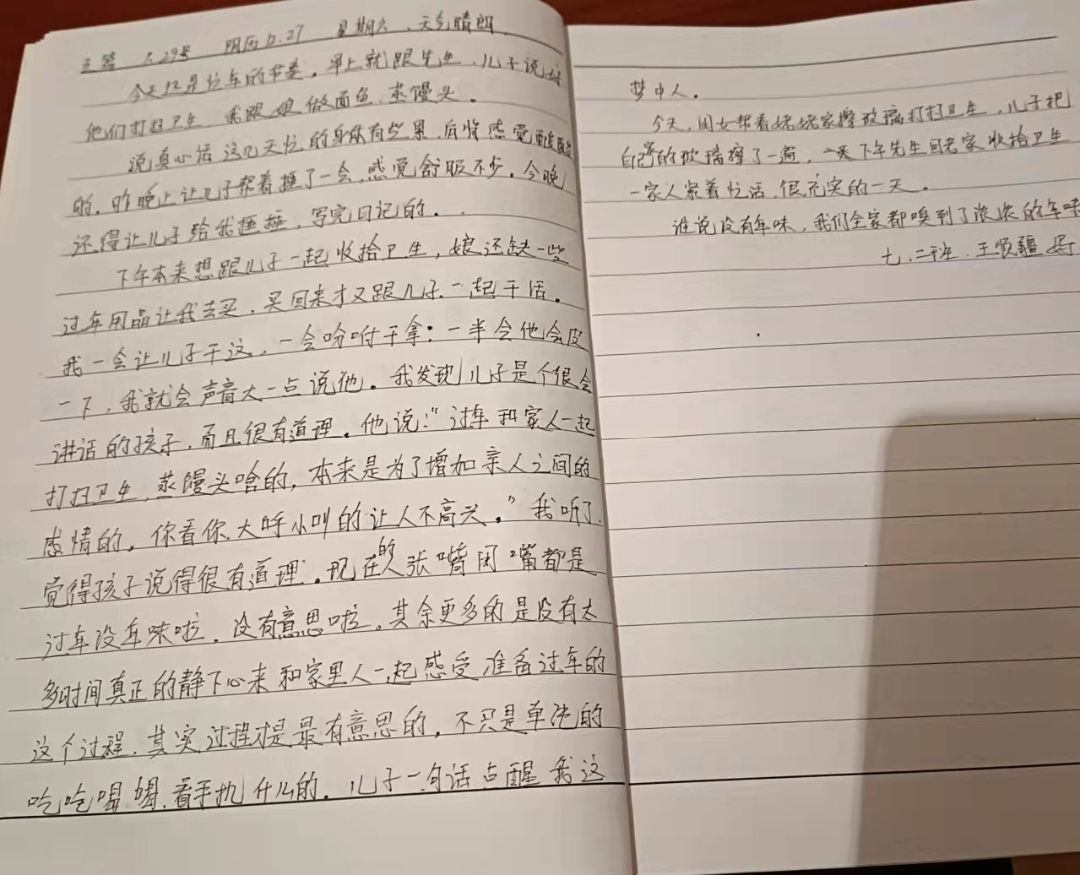 1.29号 阴历12.27 星期六、天气晴朗.
今天还是忙年的节奏。早上就跟先生、儿子说好
他们打扫卫生 我跟娘做面鱼,蒸馒头。
说真心话 这几天忙的身体有些累,后背感觉酸
的,昨晚上让儿子帮着捶了一会,感觉舒服不少。今晚
还得让儿子给我捶捶,写完日记的..
下午本来想跟儿子一起收拾卫生,娘还缺一些
过年用品让我去买,买回来才又跟儿子一起干活。
我一会让儿子干这,一会吩咐干拿:一半会他会皮
一下,我就会声音大一点说他。我发现儿子是个很会
讲话的孩子,而且很有道理。他说:“过年和家人一起
打扫卫生,蒸馒头啥的,本来是为了增加亲人之间的
感情的,你看你大呼小叫的让人不高兴。”我听了
觉得孩子说得很有道理。现在的人张嘴闭嘴都是
过年没年味啦,没有意思啦。其余更多的是没有太
多时间真正的静下心来和家里人一起感受准备过年的
这个过程,其实过程才是最有意思的,不只是单纯的
吃吃喝喝,看手机什么的。儿子一句话点醒我这
梦中人。
今天,闺女帮着姥姥家擦玻璃打扫卫生,儿子把
自己的玻璃擦了一遍,下午先生回老家收拾卫生
一家人紧着忙活,很充实的一天。
谁说没有年味,我们全家都嗅到了浓浓的年味
七、二班.王顺疆